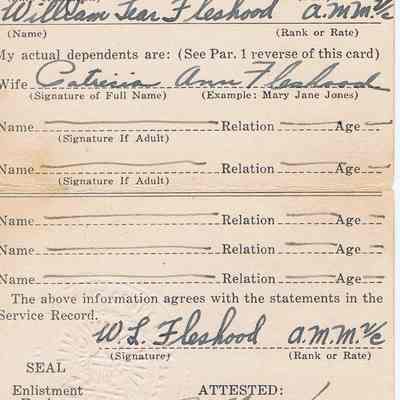 William Lear Fleshood a.m.m. 2/c
(Name) (Rank or Rate)
My actual dependents are: (See Par. 1 reverse of this card)
Wife Patrisia Ann Fleshood
(Signature of Full Name) (Example: Mary Jane Jones)
Name Relation Age
(Signature If Adult)
Name Relation Age
(Signature If Adult)
Name Relation Age
Name Relation Age
Name Relation Age
The above information agrees with the statements in the
Service Record.
W. L. Fleshood a.m.m. 2/c
(Signature) (Rank or Rate)
SEAL
Enlistment ATTESTED: